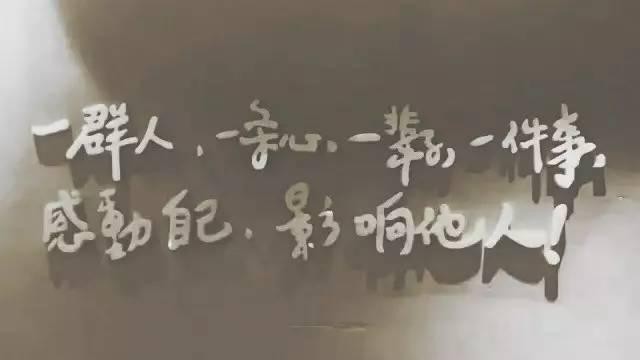 一群人,一条心,一辈子,一件事,
感動自己,影响他人!